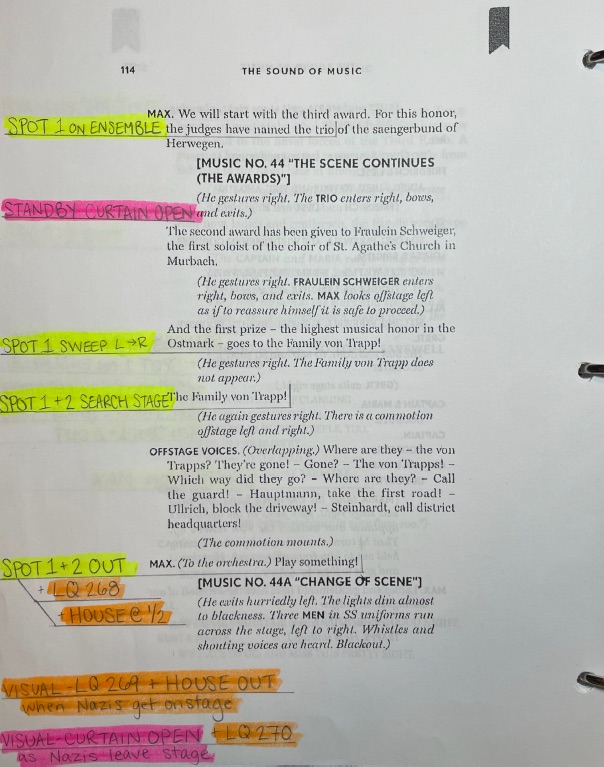 114 THE SOUND OF MUSIC
MAX. We will start with the third award. For this honor,
SPOT 1 ON ENSEMBLE the judges have named the trio of the saengerbund of
Herwegen.
[MUSIC NO. 44 "THE SCENE CONTINUES
(THE AWARDS)"]
(He gestures right. The TRIO enters right, bows,
STANDBY CURTAIN OPEN and exits.)
The second award has been given to Fraulein Schweiger,
the first soloist of the choir of St. Agathe's Church in
Murbach.
(He gestures right. FRAULEIN SCHWEIGER enters
right, bows, and exits. MAX looks offstage left
as if to reassure himself it is safe to proceed.)
And the first prize – the highest musical honor in the
SPOT 1 SWEEP L→R Ostmark – goes to the Family von Trapp!
(He gestures right. The Family von Trapp does
not appear.)
SPOT 1 + 2 SEARCH STAGE The Family von Trapp!
(He again gestures right. There is a commotion
offstage left and right.)
OFFSTAGE VOICES. (Overlapping.) Where are they – the von
Trapps? They're gone! – Gone? – The von Trapps! –
Which way did they go? – Where are they? – Call
the guard! – Hauptmann, take the first road! –
Ullrich, block the driveway! – Steinhardt, call district
headquarters!
(The commotion mounts.)
SPOT 1 + 2 OUT MAX. (To the orchestra.) Play something!
+ LQ 268 [MUSIC NO. 44A "CHANGE OF SCENE"]
+ HOUSE @ 1/2 (He exits hurriedly left. The lights dim almost
to blackness. Three MEN in SS uniforms run
across the stage, left to right. Whistles and
shouting voices are heard. Blackout.)
VISUAL - LQ 269 + HOUSE OUT
when Nazis get onstage
VISUAL - CURTAIN OPEN + LQ 270
as Nazis leave stage